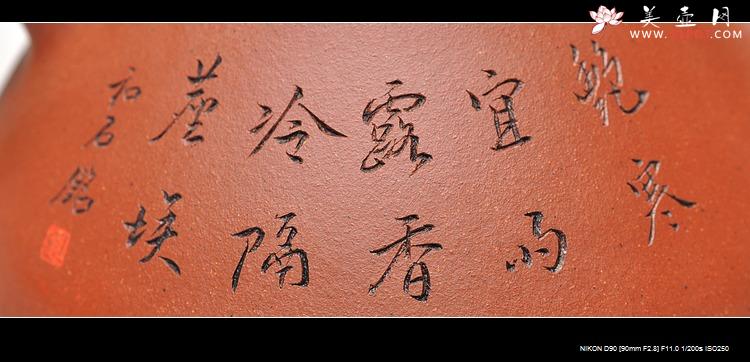 美壶网
WWW. .COM
艷寒
宜雨
露香
冷隔
塵埃
石銘
NIKON D90 [90mm F2.8] F11.0 1/200s ISO250